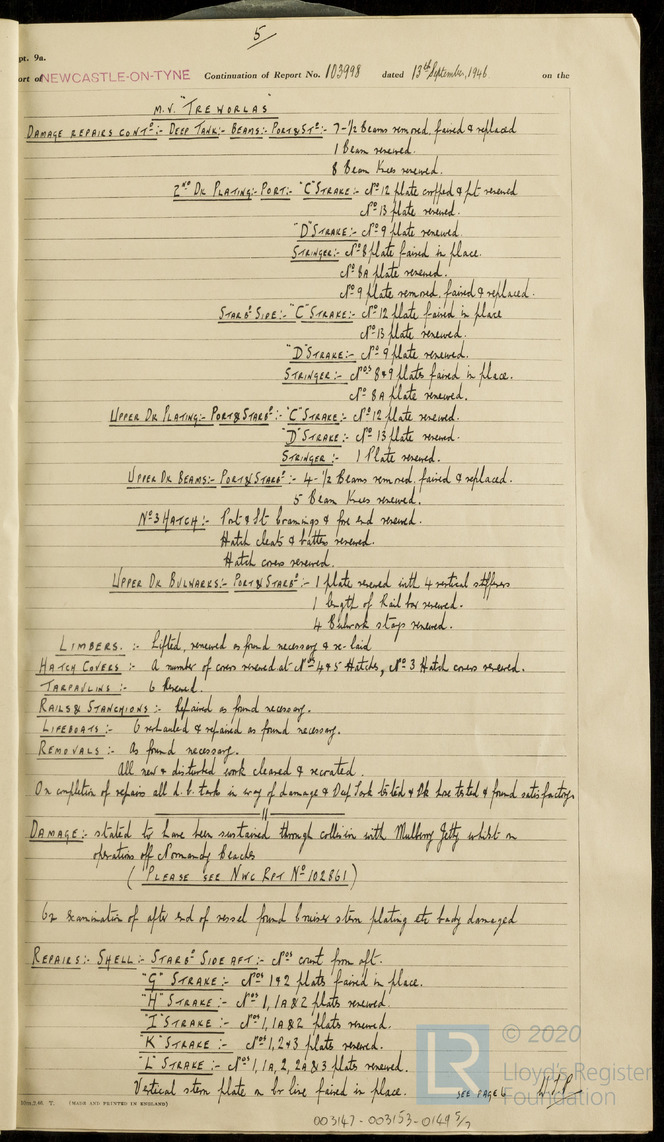 5
pt. 9a.
ort of NEWCASTLE-ON-TYNE Continuation of Report No. 103998 dated 13th September, 1946 on the
M.V. "TREWORLAS"
DAMAGE REPAIRS CONTD:- DEEP TANK:- BEAMS:- PORT & ST:- 7-1/2 Beams removed, faired & replaced
1 Beam renewed.
8 Beam Knees renewed.
2ND DK PLATING:- PORT:- "C" STRAKE:- No 12 plate cropped & pt renewed
No 13 plate renewed.
"D" STRAKE:- No 9 plate renewed.
STRINGER:- No 8 plate faired in place.
No 8A plate renewed.
No 9 plate removed, faired & replaced.
STARBD SIDE:- "C" STRAKE:- No 12 plate faired in place
No 13 plate renewed.
"D" STRAKE:- No 9 plate renewed.
STRINGER:- Nos 8 & 9 plates faired in place.
No 8A plate renewed.
UPPER DK PLATING:- PORT & STARBD:- "C" STRAKE:- No 12 plate renewed.
"D" STRAKE:- No 13 plate renewed.
STRINGER:- 1 Plate renewed.
UPPER DK BEAMS:- PORT & STARBD:- 4-1/2 Beams removed, faired & replaced.
5 Beam Knees renewed.
No 3 HATCH:- Port & St coamings & fore end renewed.
Hatch cleats & battens renewed.
Hatch covers renewed.
UPPER DK BULWARKS:- PORT & STARBD:- 1 plate renewed with 4 vertical stiffeners
1 length of Rail bar renewed.
4 Bulwark stays renewed.
LIMBERS:- Lifted, renewed as found necessary & re-laid
HATCH COVERS:- A number of covers renewed at Nos 4 & 5 Hatches, No 3 Hatch covers renewed.
TARPAULINS:- 6 Renewed.
RAILS & STANCHIONS:- Repaired as found necessary.
LIFEBOATS:- Overhauled & repaired as found necessary.
REMOVALS:- As found necessary.
All new & disturbed work cleaned & recoated.
On completion of repairs all d.b. tanks in way of damage & Deep Tank tested & Dk hose tested & found satisfactory
DAMAGE:- stated to have been sustained through collision with Mulberry Jetty whilst on
operations off Normandy Beaches
(PLEASE SEE NWC RPT No 102861)
On examination of after end of vessel found cruiser stern plating etc badly damaged
REPAIRS:- SHELL:- STARBD SIDE AFT:- Nos count from aft.
"G" STRAKE:- Nos 1 & 2 plates faired in place.
"H" STRAKE:- Nos 1, 1A & 2 plates renewed.
"I" STRAKE:- Nos 1, 1A & 2 plates renewed.
"K" STRAKE:- Nos 1, 2 & 3 plates renewed.
"L" STRAKE:- Nos 1, 1A, 2, 2A & 3 plates renewed.
Vertical stern plate on Cr line faired in place.
SEE PAGE 6
10m,2.46. T. (MADE AND PRINTED IN ENGLAND)
003147-003153-0149 5/7
LR © 2020
Lloyd's Register
Foundation